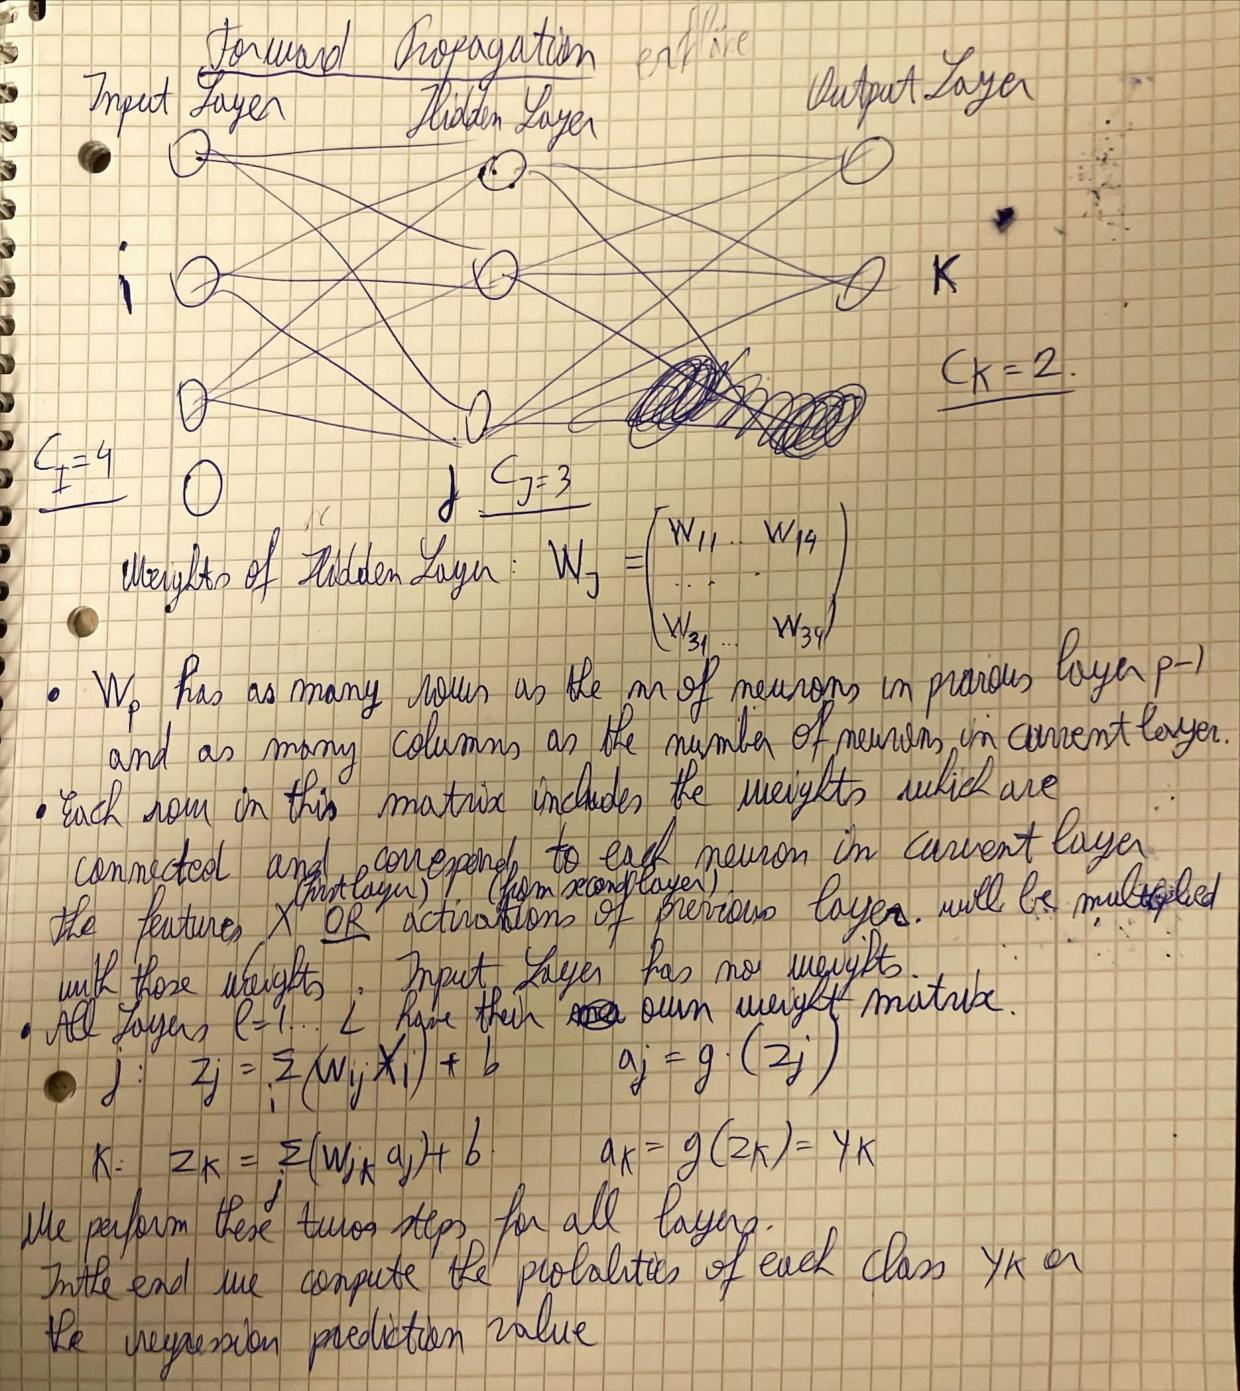 Forward Propagation
Input Layer Hidden Layer Output Layer
i K
CK = 2.
CI = 4
j CJ = 3
Weights of Hidden Layer: WJ = ( W11 .. W14
... .
W31 ... W34 )
• Wp has as many rows as the nr of neurons in previous layer p-1
and as many columns as the number of neurons in current layer.
• Each row in this matrix includes the weights which are
connected and correspond to each neuron in current layer
(first layer) (from second layer)
the features X OR activations of previous layer. will be multiplied
with those weights. Input Layer has no weights.
• All Layers l=1... L have their own weight matrix.
j: zj = Σi (wij Xi) + b aj = g·(zj)
K: zK = Σj (wjk aj) + b aK = g(zK) = yK
We perform these twos steps for all layers.
In the end we compute the probalities of each class yK or
the regression prediction value